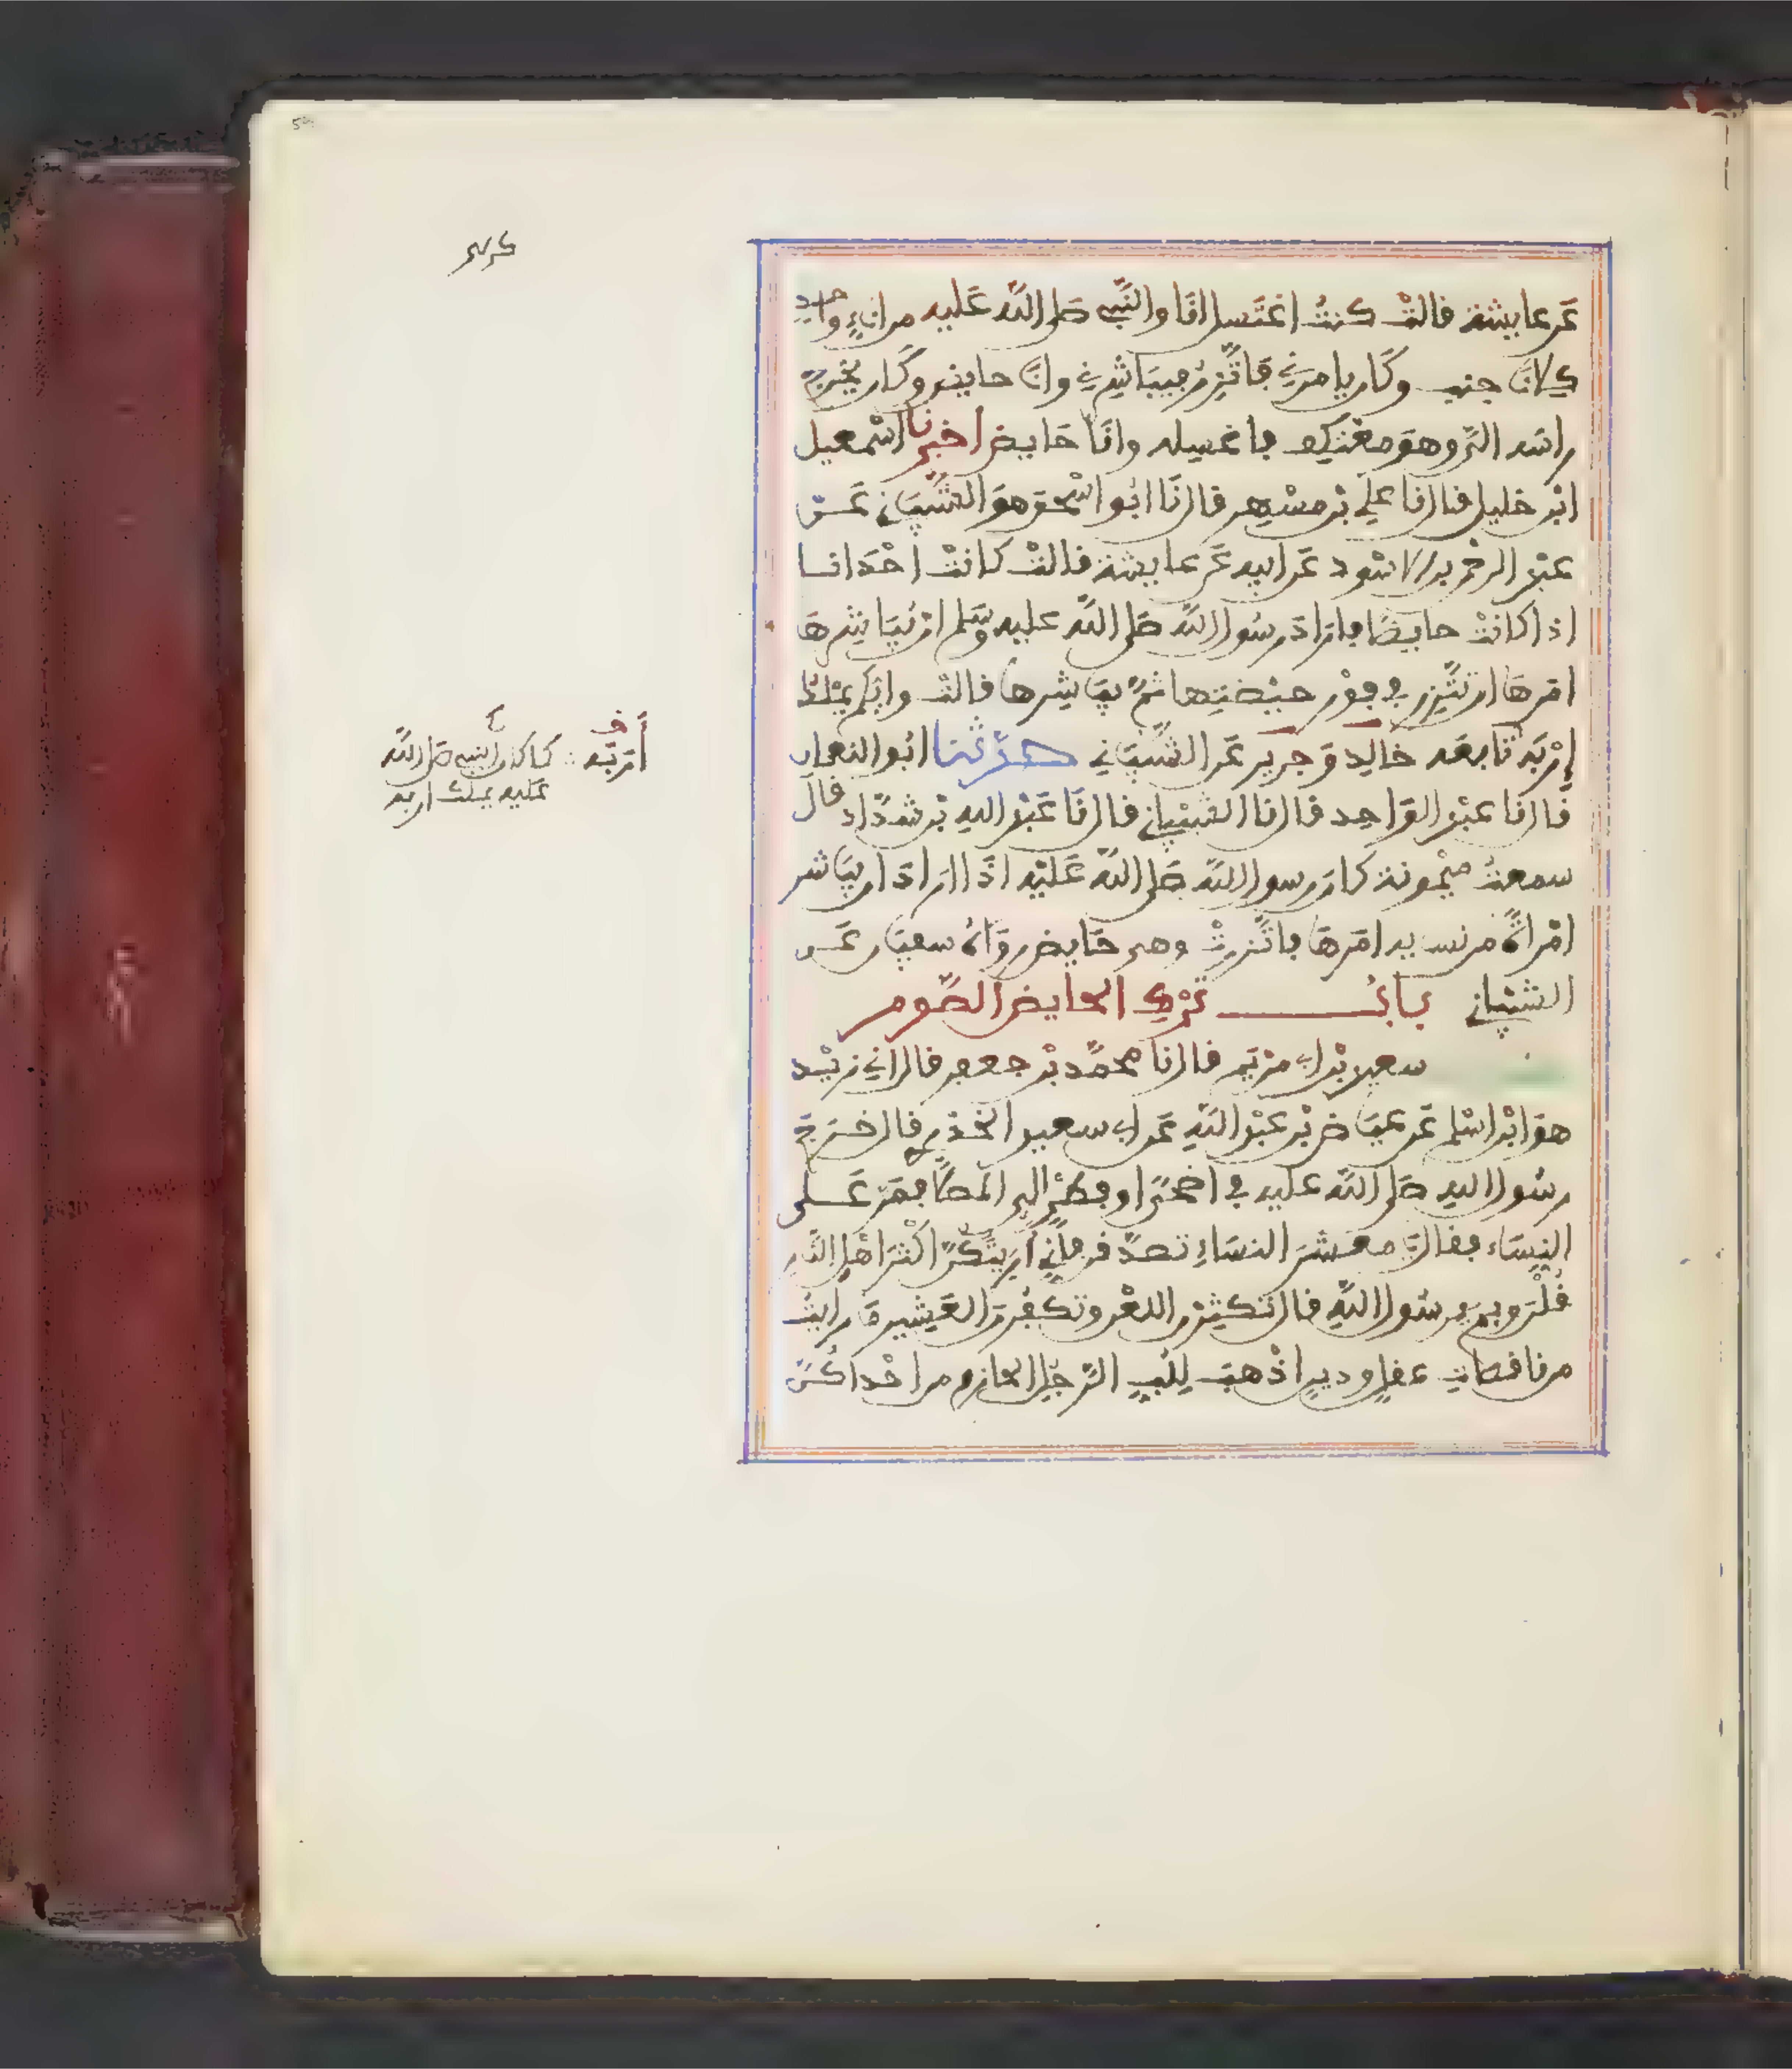 عَن عايشة قالتْ كنتُ اغتَسل انَا والنَّبي صَلى اللَّه عَليه من اناءٍ واحدٍ
كِلانَا جنب وكَان يامرني فاتَّزِرُ فيبَاشرني وانَا حايض وكَان يخرجُ
راسَه اليَّ وهوَ معْتكِف فاغسِله وانَا حَايض اخبرنا اسْمعيل
ابْن خليل قال انا علي بْن مسْهِر قال انَا ابُو اسْحق هوَ الشَّيْبَاني عَن
عبْد الرحْمن بن الاسْود عَن ابيه عَن عايشة قالتْ كانتْ احْدَانا
اذا كانتْ حايضًا فارَادَ رسُول اللَّه صَلى اللَّه عليه وسَلم انْ يُبَاشِرهَا
امَرهَا ان تتَّزِر في فوْر حيْضتِها ثمَّ يبَاشِرها قالتْ وايُّكم يمْلكُ
إرْبَه تابعَه خالِد وَجرير عَن الشَّيْبَاني حدثنا ابُو النعمان
قال انا عبْد الوَاحِد قال انا الشيْبَاني قال انَا عَبْد اللهِ بْن شدَّاد قال
سمعتُ ميْمُونة كان رسول اللَّه صَلى اللَّه عَليْه اذَا ارَادَ ان يبَاشر
امْراةً من نسَايه امَرهَا فاتَّزرتْ وهي حَايض روَاهُ سفيَان عَن
الشيْبَاني بابُ ترْك الحايض الصَّوم
سعيد بْن ابي مرْيَم قال انا محمَّد بْن جعفر قال اني زيْد
هوَ ابْن اسْلم عَن عيَاض بْن عبْد اللَّهِ عَن ابي سعيد الخدْري قال خرَج
رسُول الله صَلى اللَّه عليه في اضْحًى او فِطْرٍ الى المصَلَّا فمَرَّ عَلى
النِسَاء فقال يَا معشرَ النسَاءِ تصَدَّقن فاني اُرِيتكُنَّ اكْثرَ اهْلِ النَّارِ
قُلْن وبِمَ يرسُول اللَّهِ قال تُكثِرْن اللعْن وتكفُرنَ العَشِيرَ مَا رايتُ
من ناقصَاتِ عقلٍ ودينٍ اذْهبَ لِلُبِّ الرَّجُلِ الحازمِ من احْداكُنَّ
أَرَبَه كما كان النبي صَلى اللَّه
عَليه يملك اربه